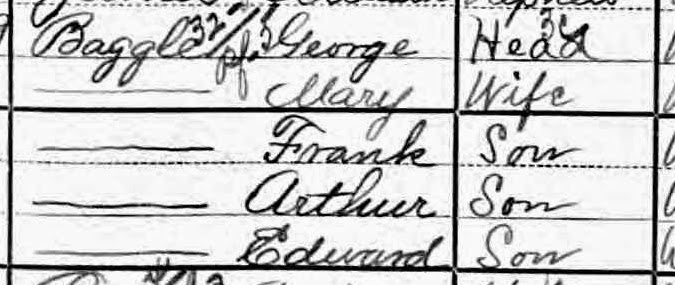 Baggle George Head
Mary Wife
Frank Son
Arthur Son
Edward Son